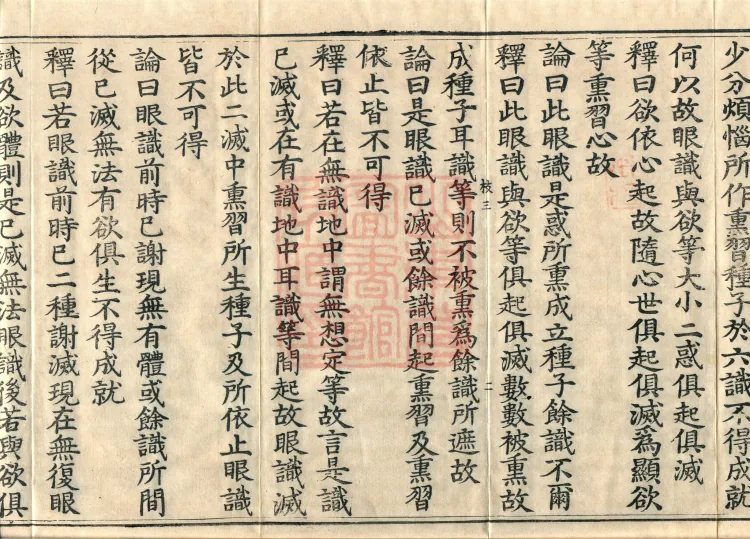 少分煩惱所作熏習種子於六識不得成就
何以故眼識與欲等大小二惑俱起俱滅
釋曰欲依心起故隨心世俱起俱滅爲顯欲
等熏習心故
論曰此眼識是惑所熏成立種子餘識不爾
釋曰此眼識與欲等俱起俱滅數數被熏故
成種子耳識等則不被熏爲餘識所遮故
論曰是眼識已滅或餘識間起熏習及熏習
依止皆不可得
釋曰若在無識地中謂無想定等故言是識
已滅或在有識地中耳識等間起故眼識滅
於此二滅中熏習所生種子及所依止眼識
皆不可得
論曰眼識前時已謝現無有體或餘識所間
從已滅無法有欲俱生不得成就
釋曰若眼識前時已二種謝滅現在無復眼
識及欲體則是已滅無法眼識後若與欲俱
二